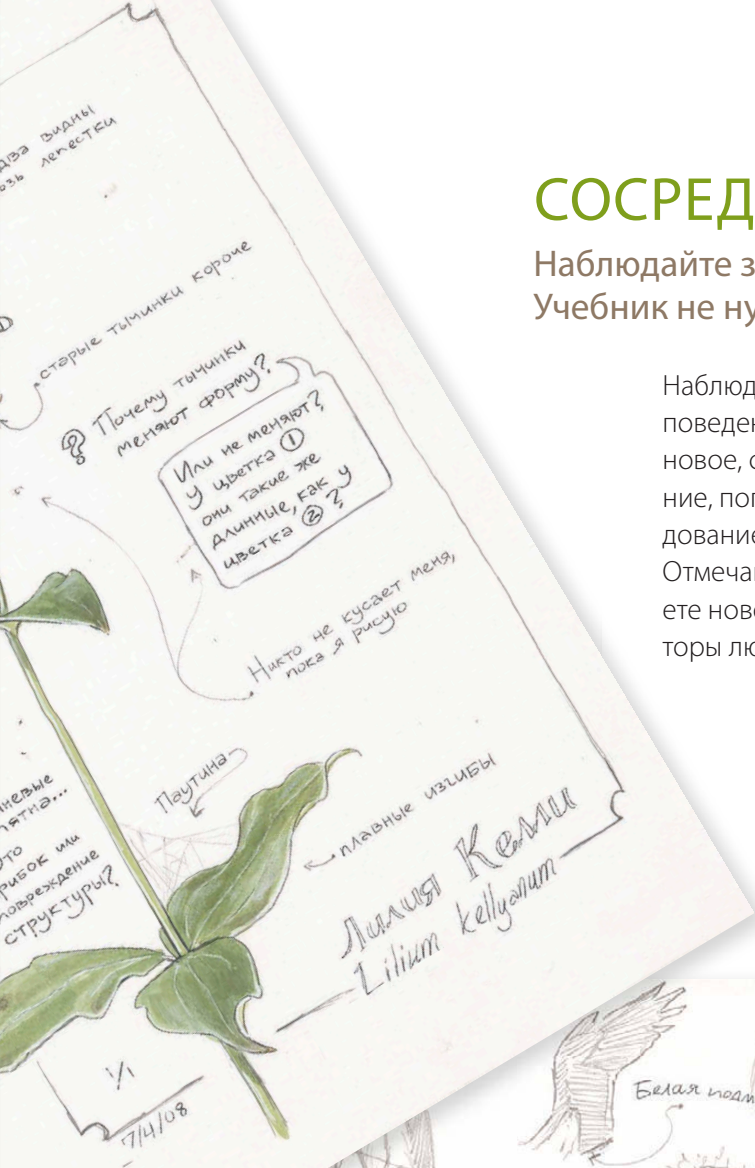 два видны
лепестки
старые тычинки короче
Почему тычинки
меняют форму?
Или не меняют?
У цветка ①
они такие же
длинные, как у
цветка ② ?
Никто не кусает меня,
пока я рисую
Паутина
плавные изгибы
или
структуры?
Лилия Келли
Lilium kellyanum
1/1
7/4/08
СОСРЕД
Наблюдайте з
Учебник не ну
Наблюд
поведен
новое, с
ние, пог
дование
Отмечаі
ете нов
торы лю
Белая подм